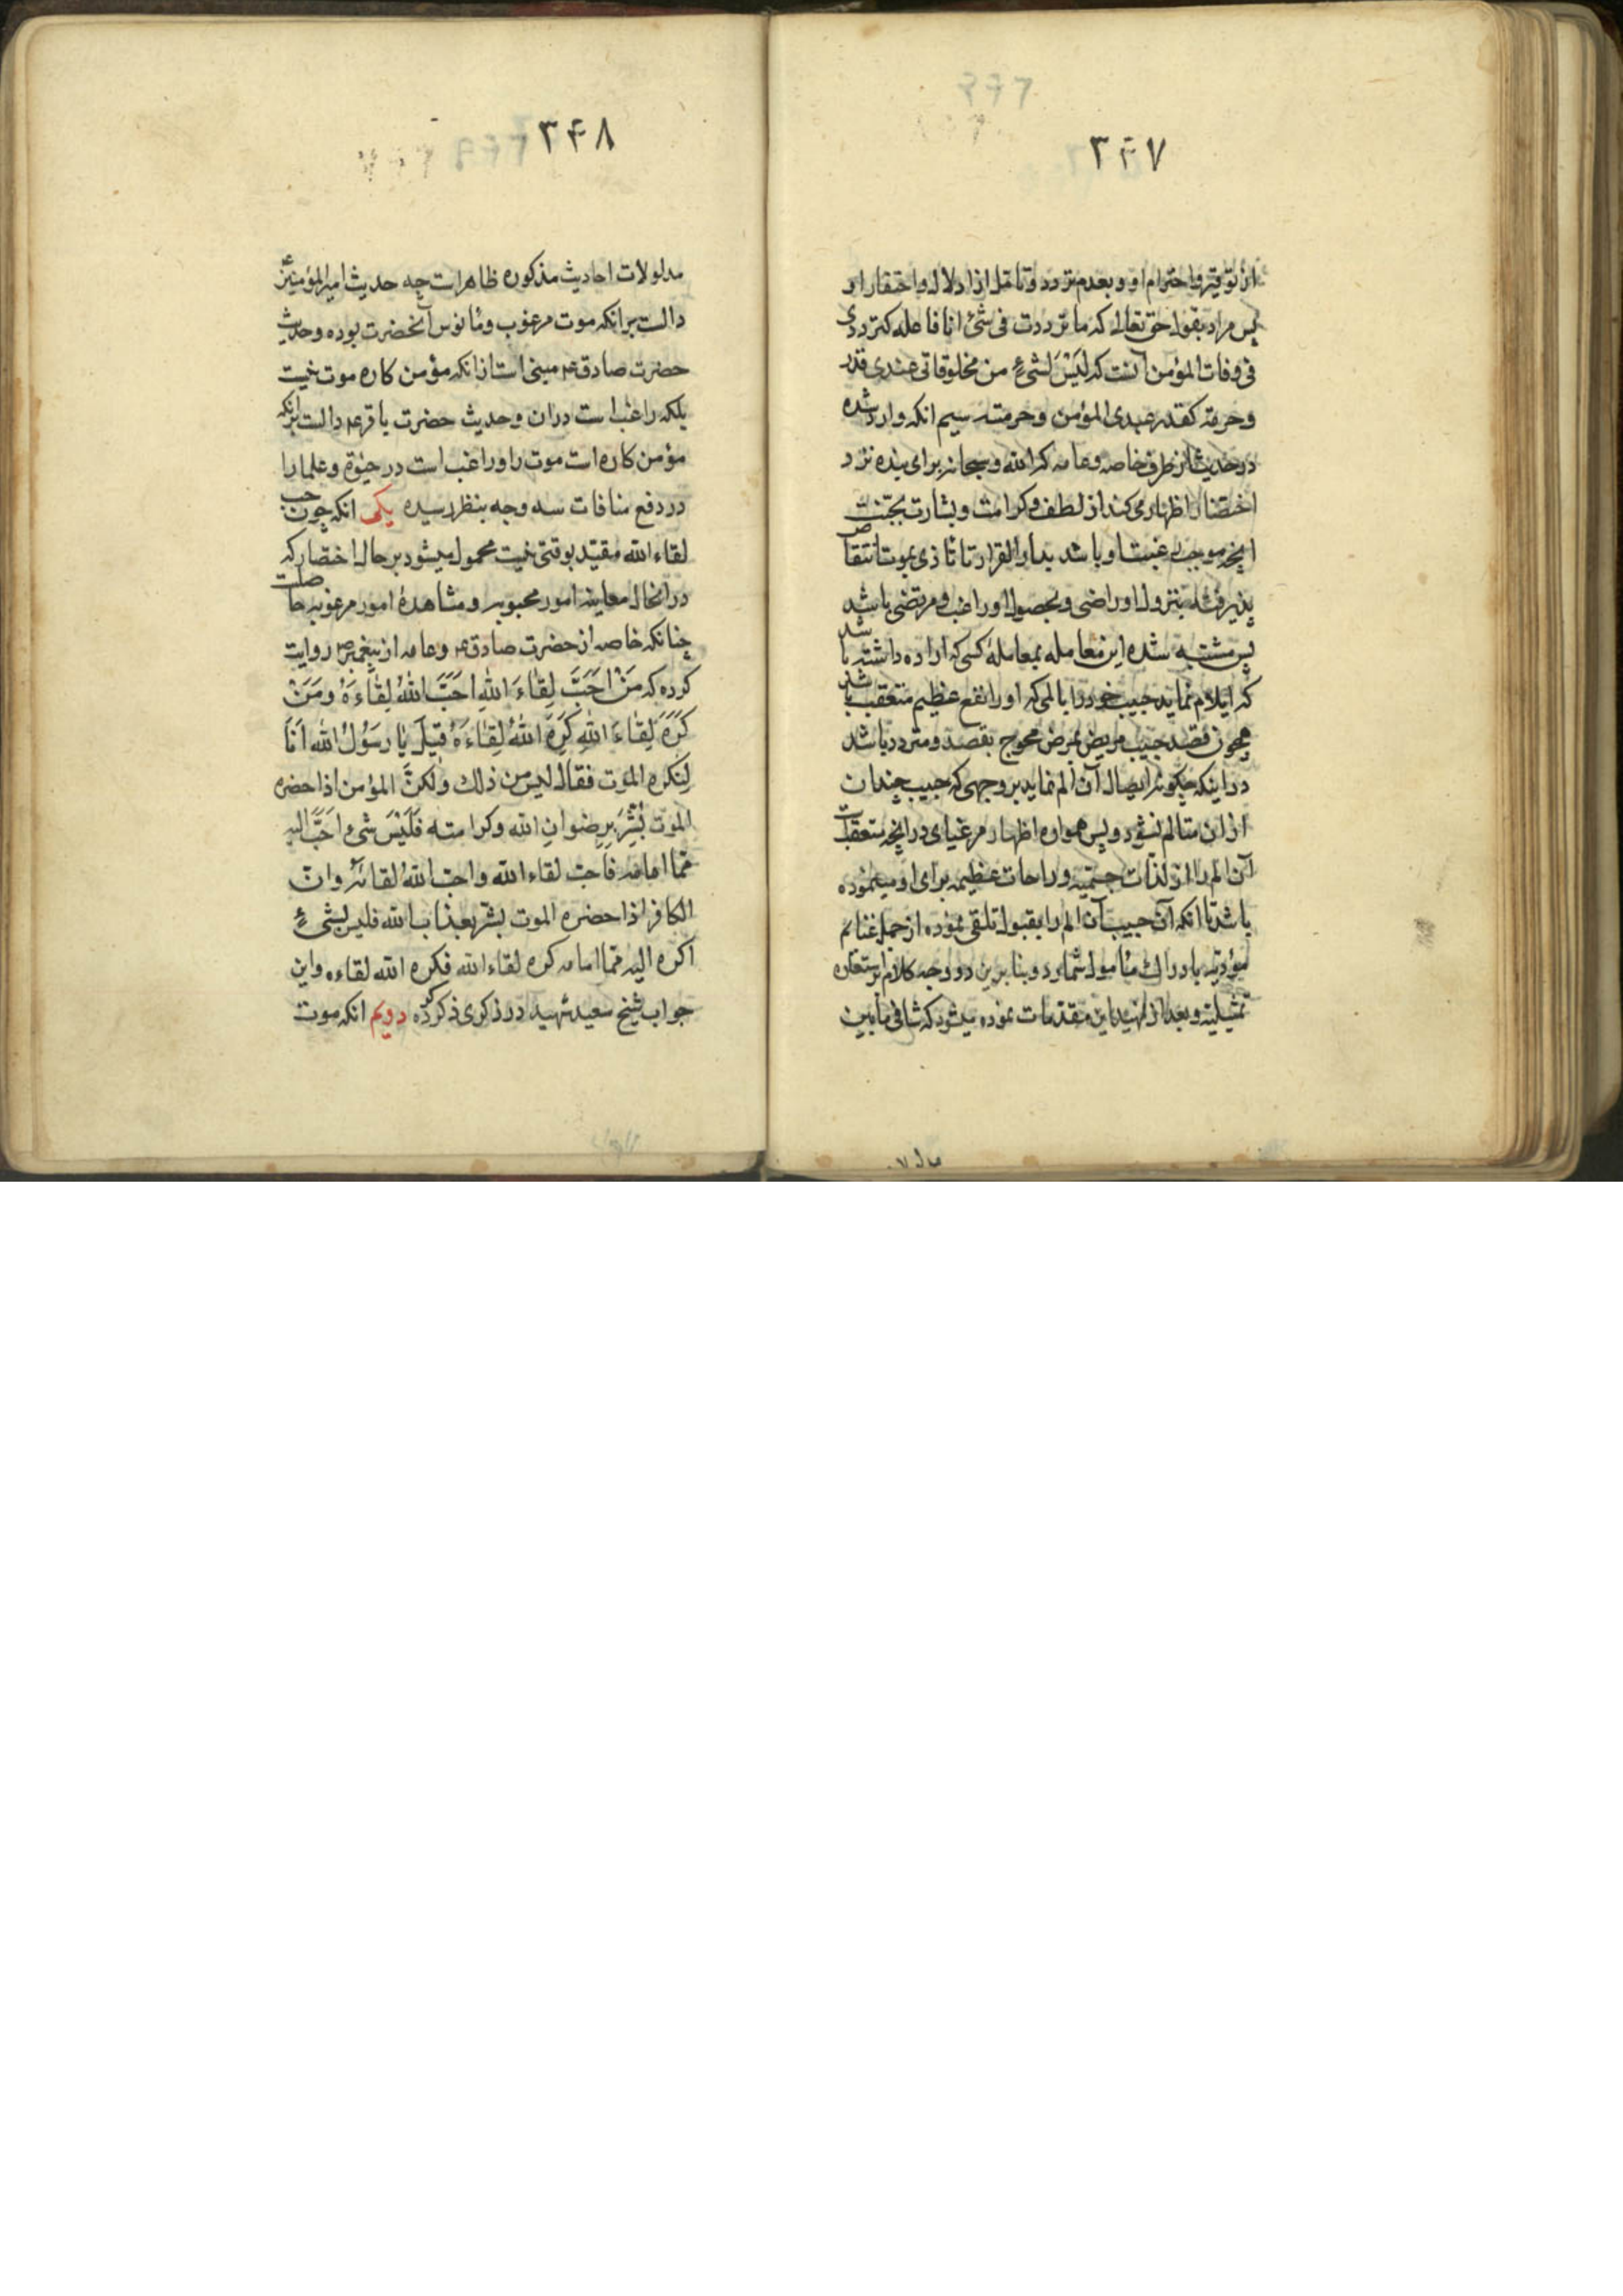 ۳۴۷
از توقیر و احترام او و بعدم تردد و تامل از اذلال و احتقار او
پس مراد بقول حق تعالی که ما ترددت فی شئ انا فاعله کترددی
فی وفات المؤمن آنست که لَیْسَ لشیءٍ من مخلوقاتی عندی قدر
وحرمة کقدر عبدی المؤمن وحرمته سیم انکه وارد شده
در حدیث از طرف خاصه و عامه که الله سبحانه برای بنده نزد
احتضار اظهار می کند از لطف و کرامت و بشارت بجنت
انچه موجب رغبت او باشد بدار القرار تا تاذی بموت انتقاص
پذیرفته بنزول او راضی و بحصول او راغب و مرتضی باشد
پس مشتبه شده این معامله بمعاملهٔ کسی که اراده داشته باشد
که ایلام نماید حبیب خود را بالمی که او را نفع عظیم متعقب باشد
همچون قصد حبیب مریض بمرض محوج بقصد و متردد باشد
در اینکه چکونه ایصال آن الم نماید بر وجهی که حبیب چندان
از ان متالم نشود و پس همواره اظهار مرغبات در انچه متعقب است
آن الم را از لذات جسمیه و راحات عظیمه برای او مینموده
باشد تا انکه آن حبیب آن الم را بقبول تلقی نموده از جمله غنائم
مؤدیه بادراك مأمول شمارد و بنا برین دو وجه کلام استعاره
تمثیلیه و بعد از تمهید این مقدمات نموده میشود که تنافی ما بین
۳۴۸
مدلولات احادیث مذکوره ظاهرات چه حدیث امیرالمؤمنین ع
دالست برانکه موت مرغوب و مأنوس آنحضرت بوده و حدیث
حضرت صادق ع مبنی است ازانکه مؤمن کاره موت نیست
بلکه راغب است دران و حدیث حضرت باقر ع دالست برانکه
مؤمن کاره است موت را و راغب است در حیوة و علما را
در دفع منافات سه وجه بنظر رسیده یکی انکه چون حب
لقاء الله مقید بوقتی نیست محمول میشود بر حال احتضار که
درانحال معاینه امور محبوبه و مشاهدهٔ امور مرغوبه حاصلست
چنانکه خاصه از حضرت صادق ع و عامه از پیغمبر ص روایت
کرده که مَنْ اَحَبَّ لِقاءَ اللهِ اَحَبَّ اللهُ لِقاءَهُ ومَنْ
کَرِهَ لِقاءَ اللهِ کَرِهَ اللهُ لِقاءَهُ قیلَ یا رسَوُلُ الله اَنَا
لِنَکره الموت فقال لیس من ذلك ولکنَّ المؤمن اذا حضره
الموت بُشِّرَ بِرِضوانِ الله وکرامته فَلَیْسَ شیء اَحَبَّ الیه
ممّا امامه فاحب لقاء الله واحب اللهُ لقائه وان
الکافر اذا حضره الموت بشر بعذاب الله فلیس لشیءٍ
اکره الیه ممّا امامه کره لقاء الله فکره الله لقاءه واین
جواب شیخ سعید شهید در ذکری ذکر کرده دویم انکه موت